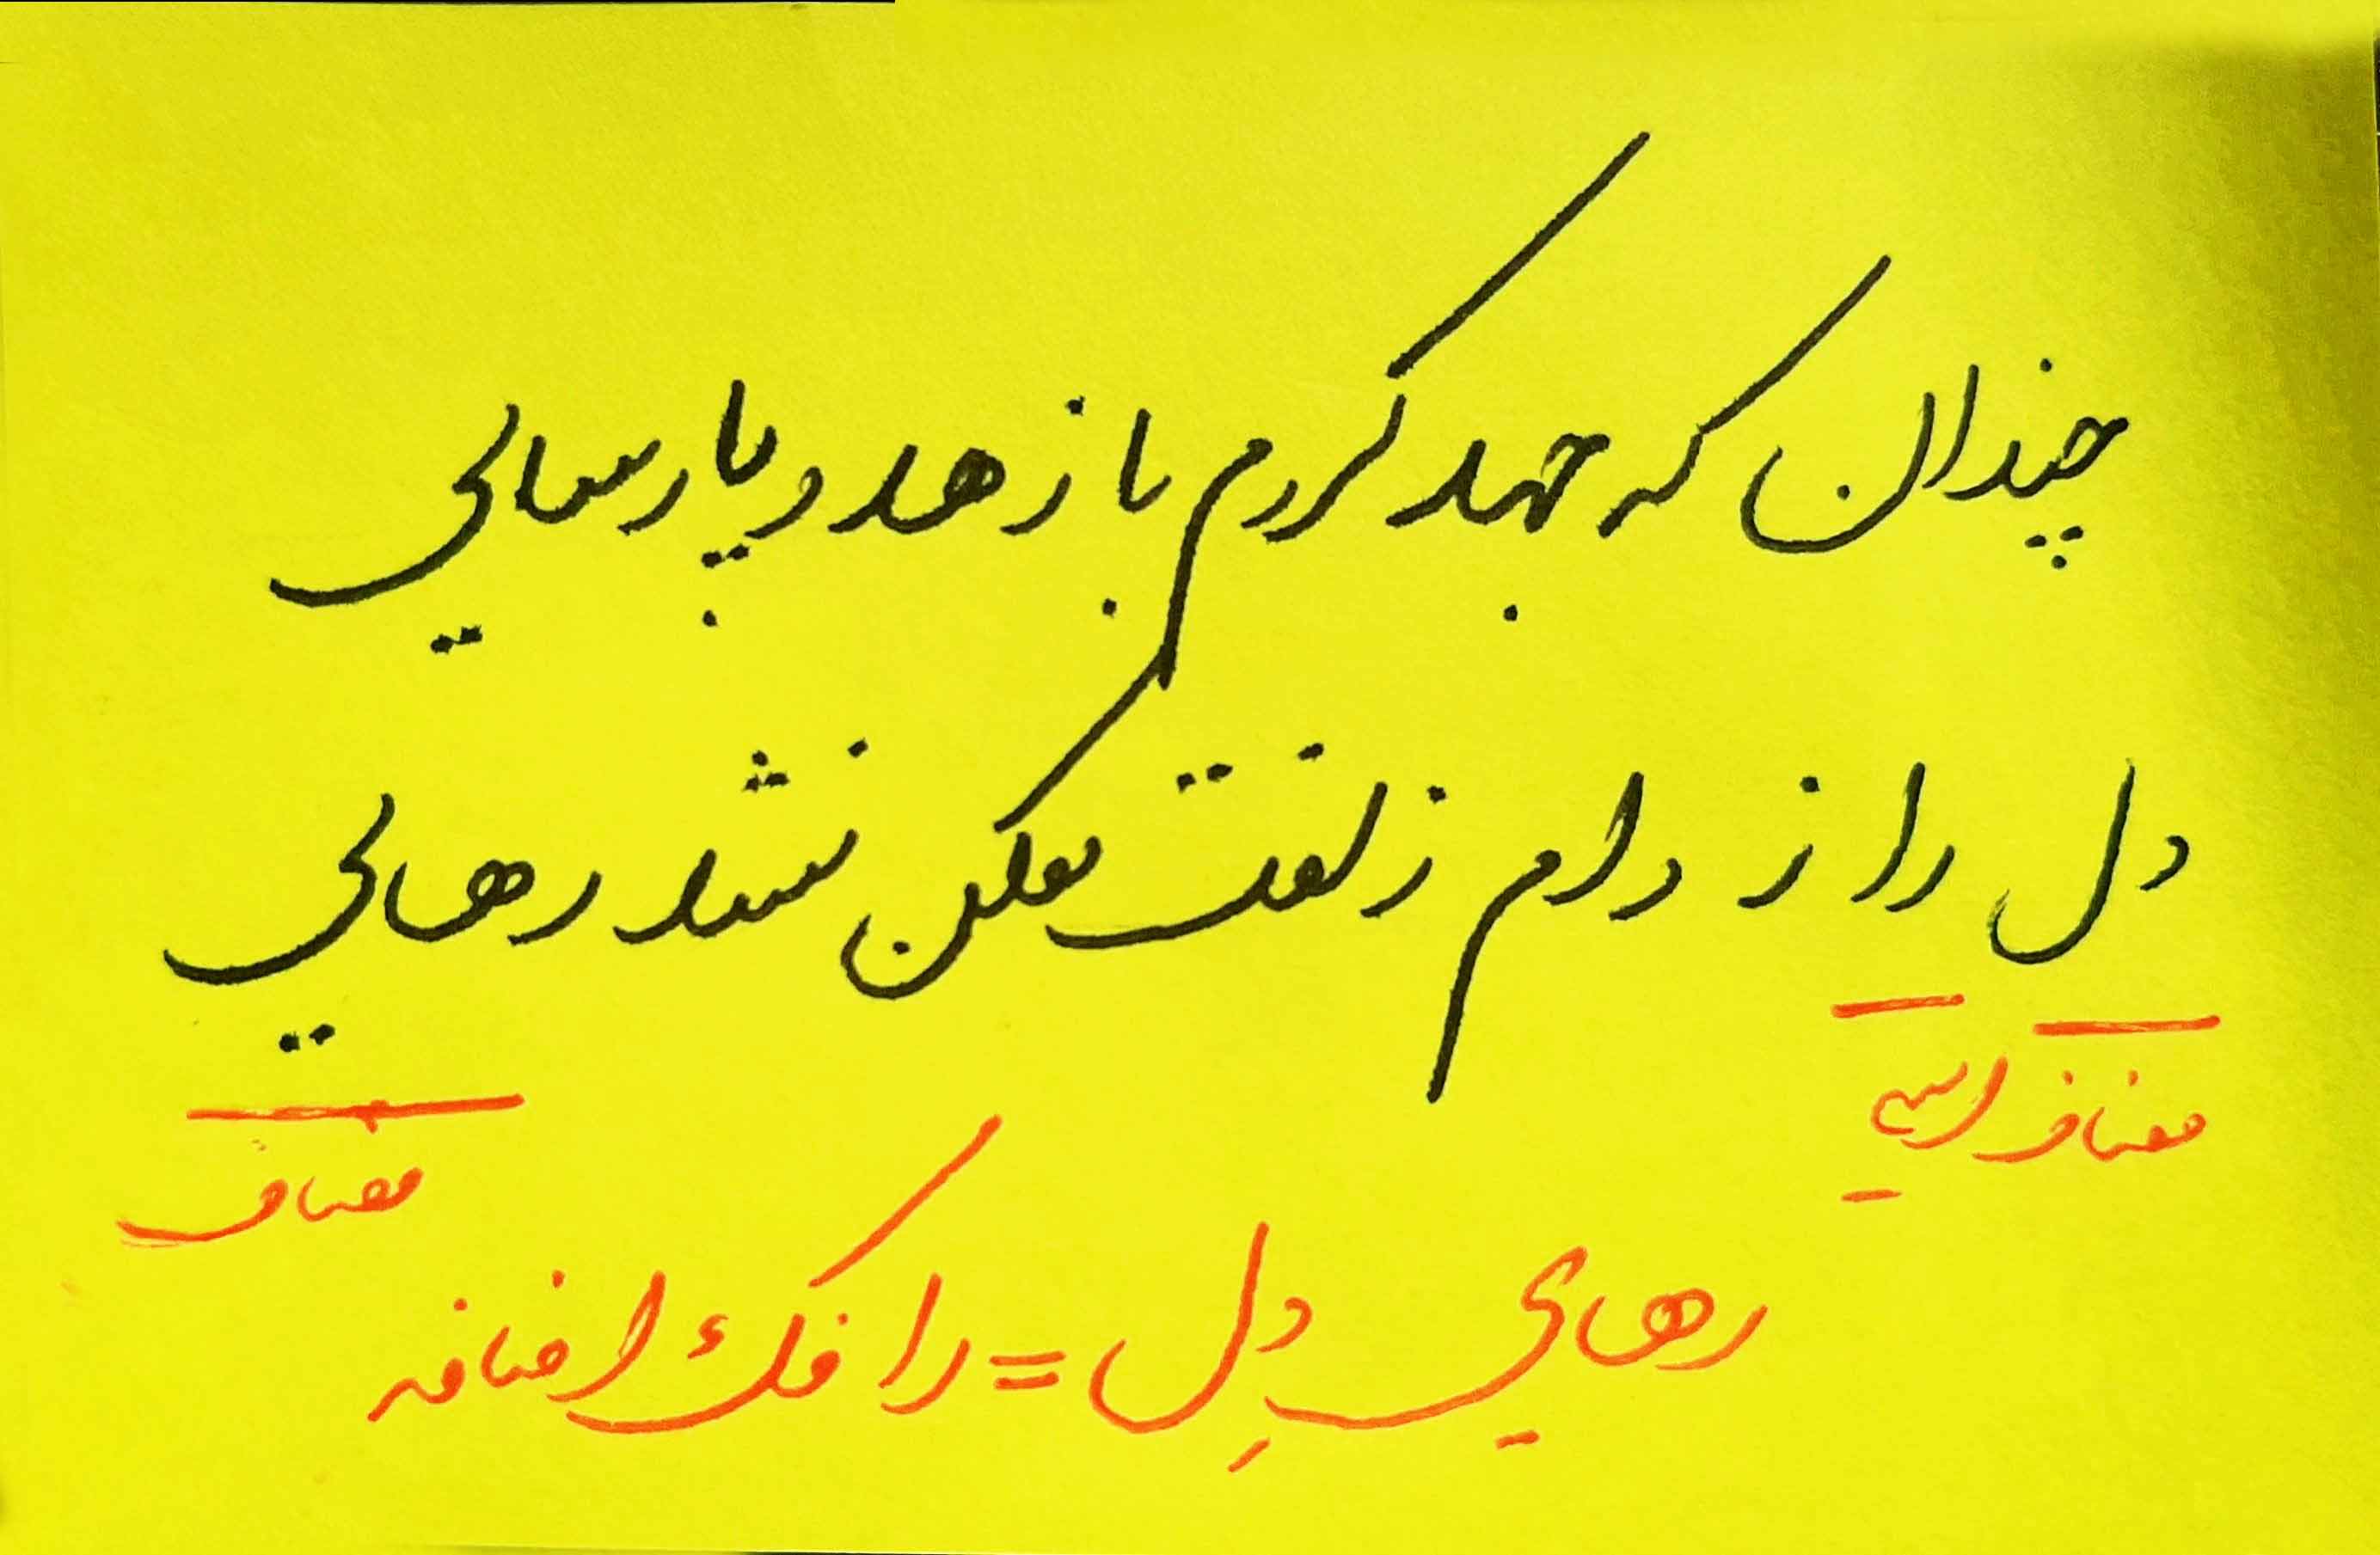 چندان که جهد کردم با زهد و پارسایی
دل را از دام زلفت ممکن نشد رهایی
مضاف الیه
مضاف
رهایِ دل = را فکّ اضافه